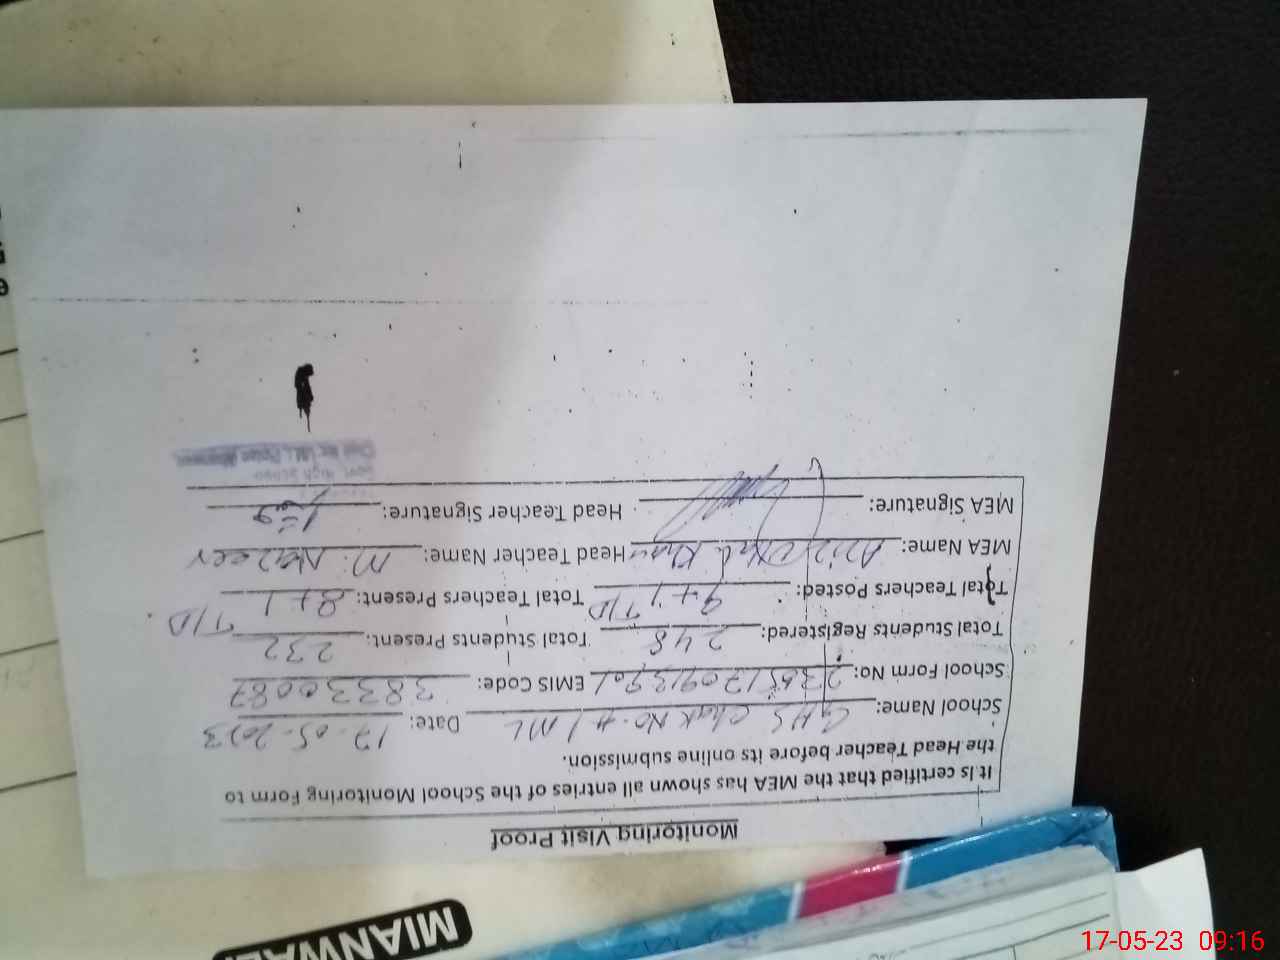 Monitoring Visit Proof
It is certified that the MEA has shown all entries of the School Monitoring Form to
the Head Teacher before its online submission.
School Name: GHS Chak No. # 1 ML Date: 17-05-2023
School Form No: EMIS Code: 38330087
Total Students Registered: 248 Total Students Present: 232
Total Teachers Posted: 9+1 T/D Total Teachers Present: 8+1 T/D
MEA Name: Khan Head Teacher Name: M.
MEA Signature: Head Teacher Signature:
Govt High School
MIANWAL
17-05-23 09:16